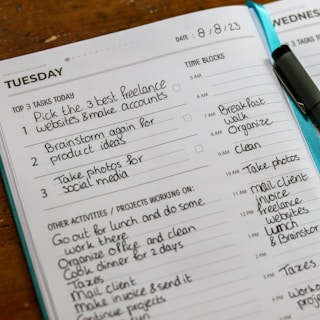 TUESDAY
DATE : 8/8/23
WEDNES
TOP 3 TASKS TODAY
1 Pick the 3 best freelance
websites & make accounts
2 Brainstorm again for
product ideas
3 Take photos for
social media
OTHER ACTIVITIES / PROJECTS WORKING ON:
Go out for lunch and do some
work there
Organize office and clean
Cook dinner for 2 days
Taxes
Mail client
Make invoice & send it
Continue projects
TIME BLOCKS
5 AM
6 AM
7 AM Breakfast
walk
8 AM Organize
9 AM clean
10 AM Take photos
11 AM Mail client
invoice
12 PM freelance
websites
1 PM Lunch
& Brainstor
2 PM
3 PM Taxes
4 PM Worko
proje